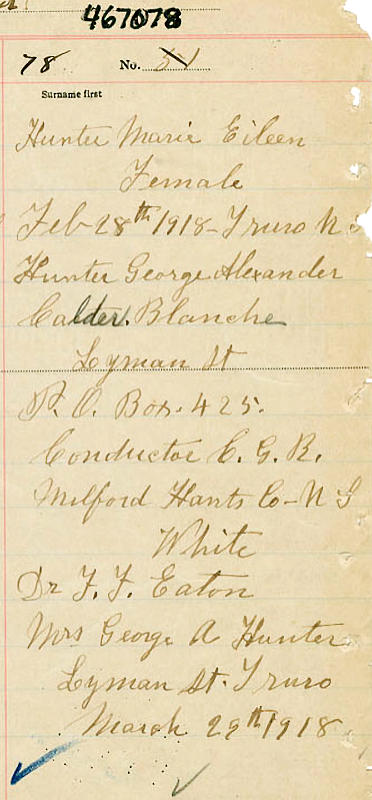 467078
78 No. 51
Surname first
Hunter Marie Eileen
Female
Feb 28th 1918 - Truro N S
Hunter George Alexander
Calder. Blanche
Lyman St
P. O. Box. 425.
Conductor C. G. R.
Milford Hants Co - N S
White
Dr F. F. Eaton
Mrs George A Hunter
Lyman St. Truro
March 29th 1918